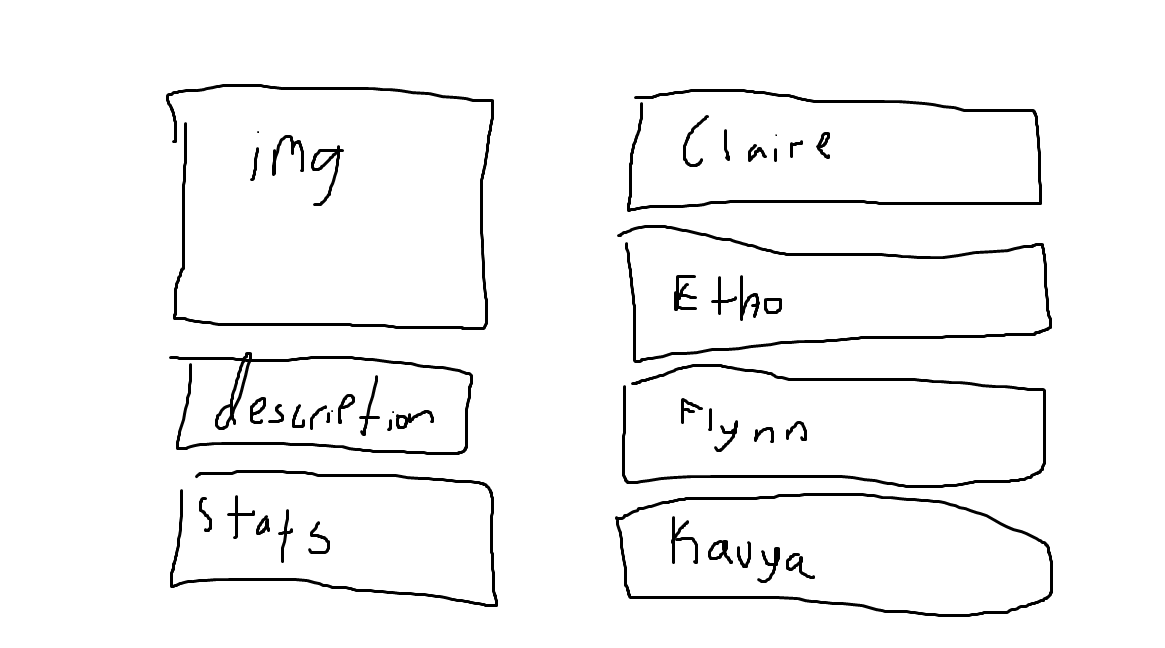 img
description
stats
Claire
Etho
Flynn
Kavya